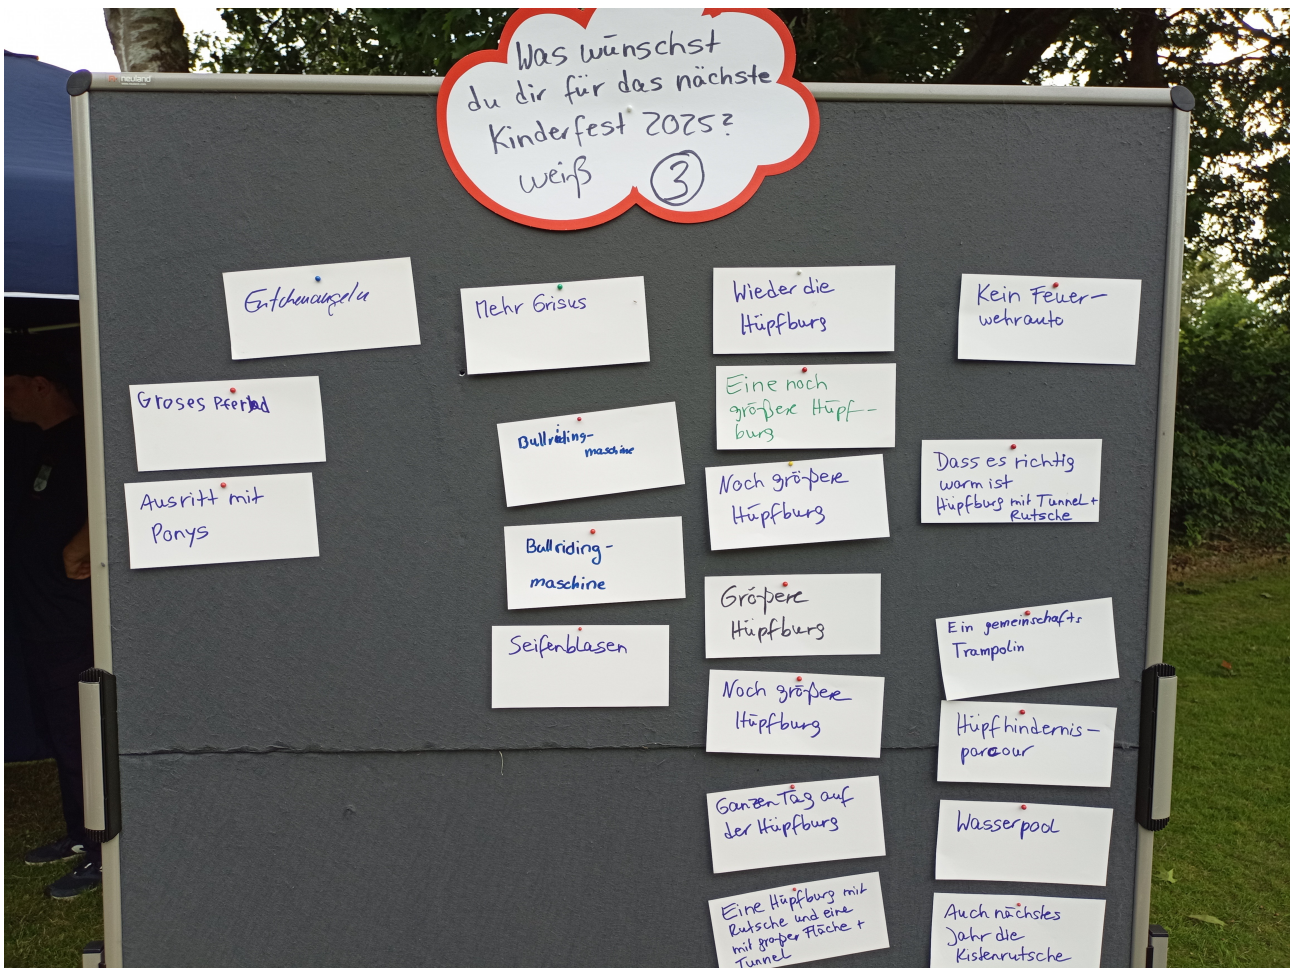 neuland
Was wünschst
du dir für das nächste
Kinderfest 2025?
weiß 3
Entchenangeln
Groses Pferd
Ausritt mit
Ponys
Mehr Grisus
Bullriding-
maschine
Bullriding-
maschine
Seifenblasen
Wieder die
Hüpfburg
Eine noch
größere Hüpf-
burg
Noch größere
Hüpfburg
Größere
Hüpfburg
Noch größere
Hüpfburg
Ganzen Tag auf
der Hüpfburg
Eine Hüpfburg mit
Rutsche und eine
mit großer Fläche +
Tunnel
Kein Feuer-
wehrauto
Dass es richtig
warm ist
Hüpfburg mit Tunnel +
Rutsche
Ein gemeinschafts
Trampolin
Hüpfhindernis-
parcour
Wasserpool
Auch nächstes
Jahr die
Kistenrutsche